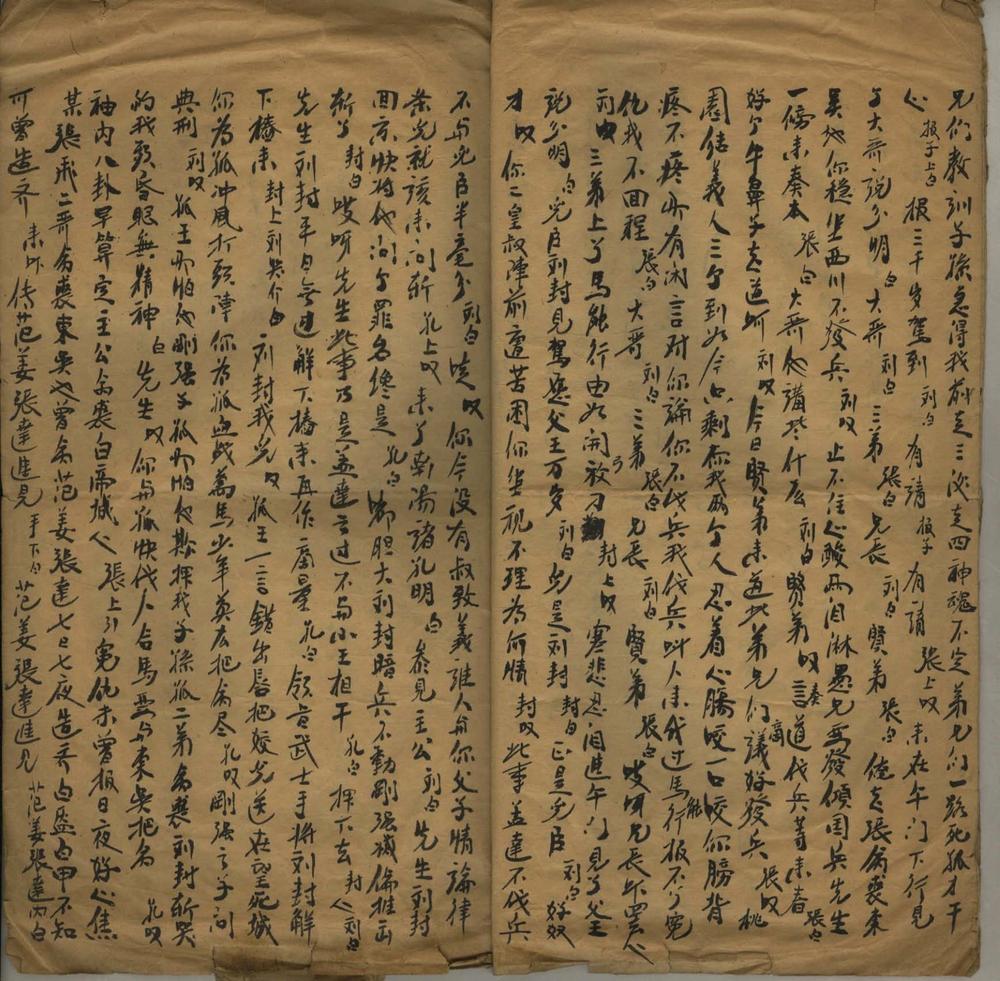 兄们教训子孫怎得我劝走三次走四神魂不定弟兄们一路死孤才干
心 报子上白 报三千岁驾到 刘白 有請 报子 有請 張上叹 来在午门下行見
了大哥说分明 白 大哥 刘白 三弟 張白 兄長 刘白 賢弟 張白 俺去張飛喪東
吴地你穩坐西川不發兵 刘叹 止不住心酸两泪淋愚兄要發傾国兵先生
一傍来奏本 張白 大哥他講些什么 刘白 賢弟 叹 奏言道伐兵等来春 張白
好个牛鼻子去道 刘叹 今日賢弟来道此弟兄们商議好發兵 張叹 桃
園结義人三个到如今只剩你我两个人忍着心膓咬一口咬你膀背
疼不疼所有闲言对你論你不伐兵我伐兵叫人来我过馬能行报不了冤
仇我不回程 張白 大哥 刘白 三弟 張白 兄長 刘白 賢弟 張白 哎呀兄長
刘叹 三弟上了馬能行由如開弓放刀 封上叹 塞悲忍泪進午门見了父王
说分明 白 児臣刘封見駕愿父王万岁 刘白 児是刘封 封白 正是児臣 刘白 好奴
才 叹 你二皇叔陣前遭苦困你坐視不理為何情 封叹 此事孟達不伐兵
不与児臣半毫分 刘白 哎 叹 你今没有叔致義誰人与你父子情論律
条児就該来问斬 孔上叹 来了南陽諸孔明 白 参見主公 刘白 先生刘封
回京快将他问个罪名儘是 孔白 嘟胆大刘封暗兵不動剛强減倫推出
斬了 封白 哎呀先生此事乃是孟達之过不与小王相干 孔白 押下去 封 刘白
先生刘封平日無过解下樁来再作商量 孔白 领旨武士手将刘封解
下樁来 封上刘哭介白 刘封我児 叹 孤王一言錯出唇把姣児送在望死城
你為孤冲風打头陣你為孤血战萬馬少年英雄把命尽 孔叹 剛强了子问
典刑 刘叹 孤王不怕他剛强子孤不怕他欺押我子孫孤二弟命喪刘封斬哭
的我头昏眼無精神 白 先生 叹 你与孤快伐人合馬要与東吴把命 孔叹
袖内八卦早算定主公命喪白帝城 張上引 冤仇未曾报日夜好心焦
某張飛二哥命喪東吴也曾命范姜張達七日七夜造齐白盔白甲不知
可曾造齐 来呀傳范姜張達進見 手下白 范姜張達進見 范姜張達内白